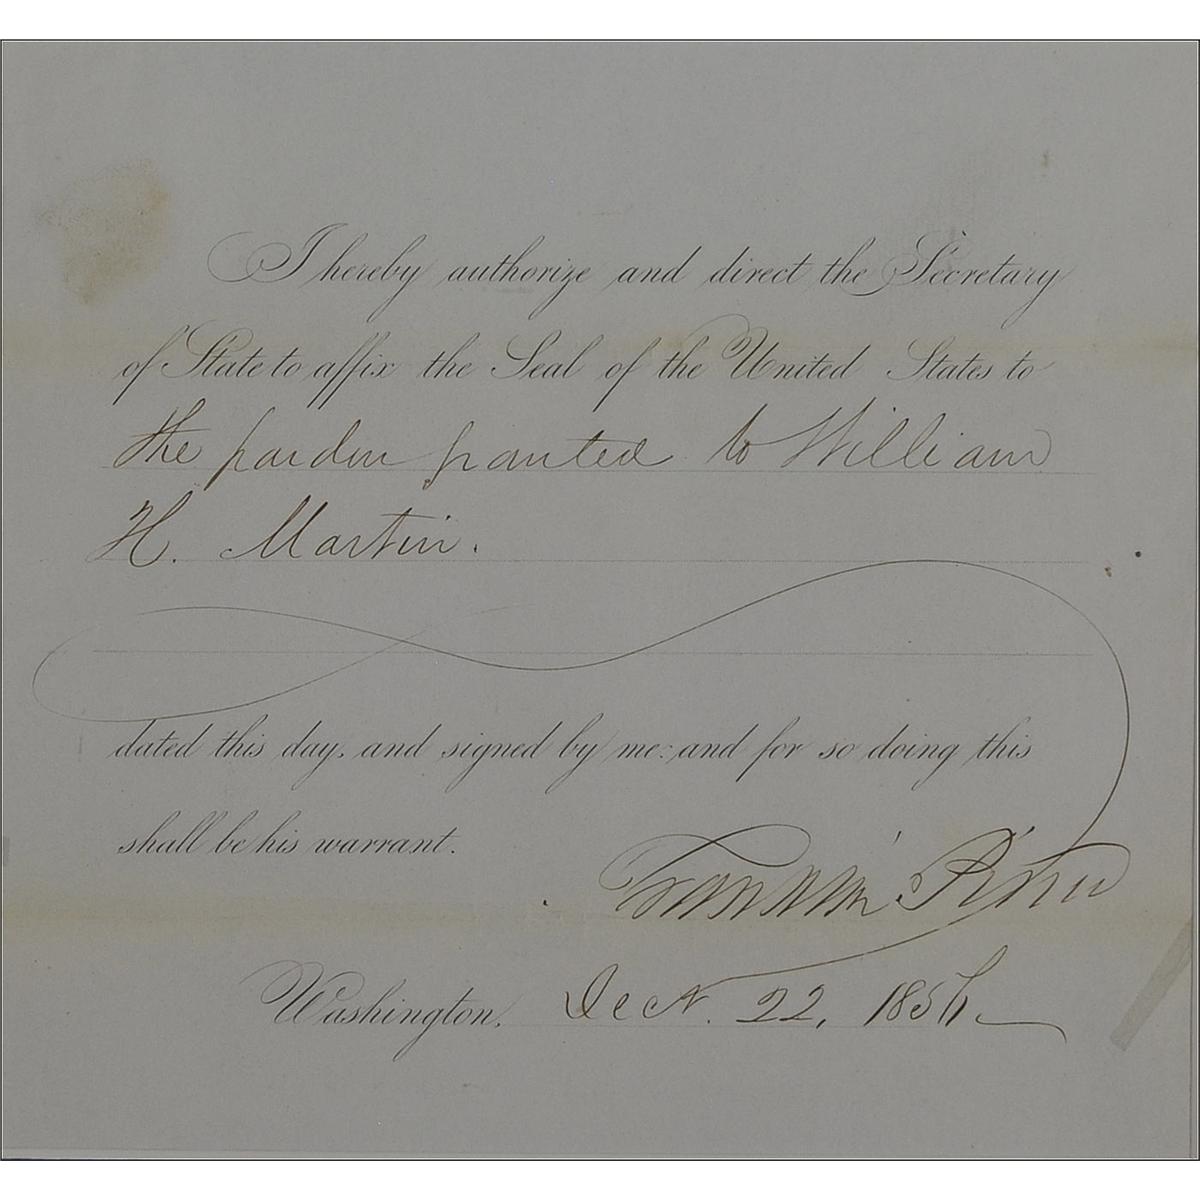 I hereby authorize and direct the Secretary
of State to affix the Seal of the United States to
the pardon granted to William
H. Martin.
dated this day, and signed by me: and for so doing this
shall be his warrant.
Franklin Pierce
Washington, Decr. 22, 1856